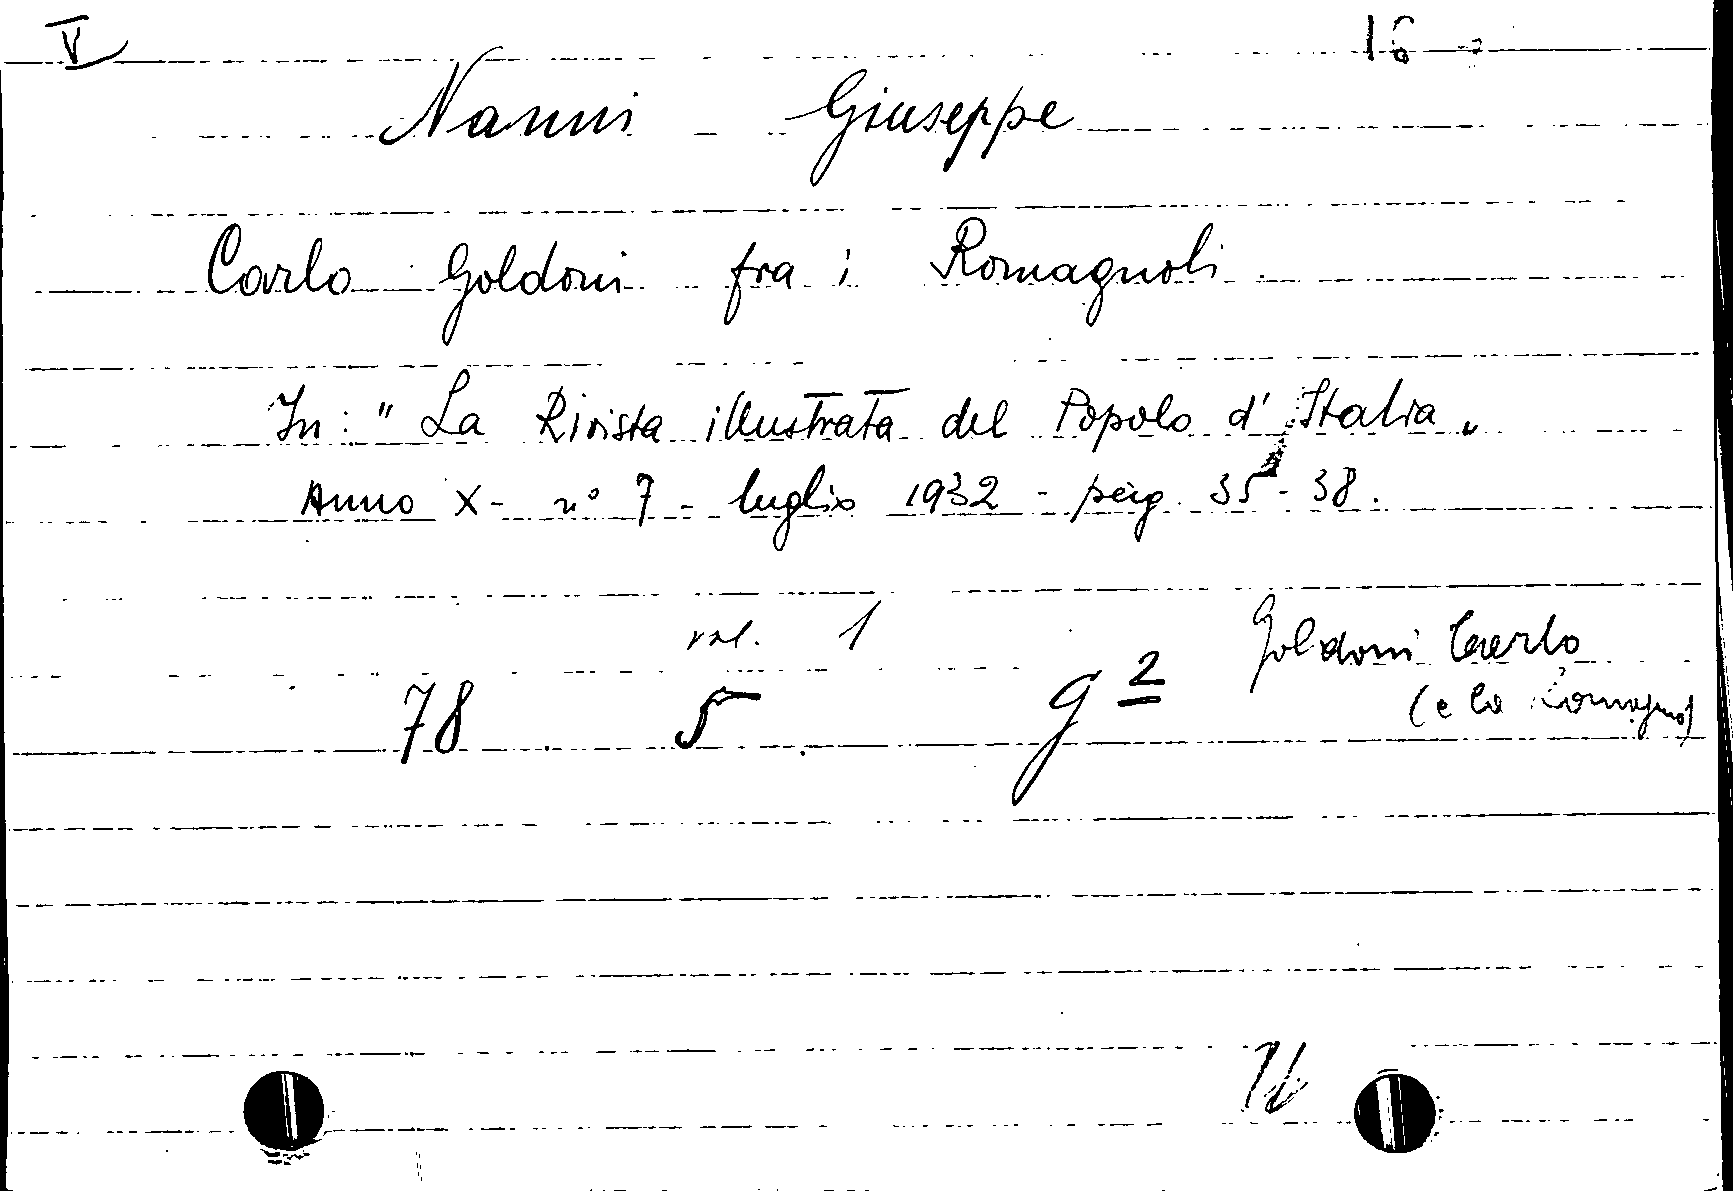 V 16
Nanni Giuseppe
Carlo Goldoni fra i Romagnoli
In: " La Rivista illustrata del Popolo d' Italia "
Anno X - n° 7 - luglio 1932 - pag. 35 - 38.
vol. 1
78 5 g 2
Goldoni Carlo
(e la Romagna)